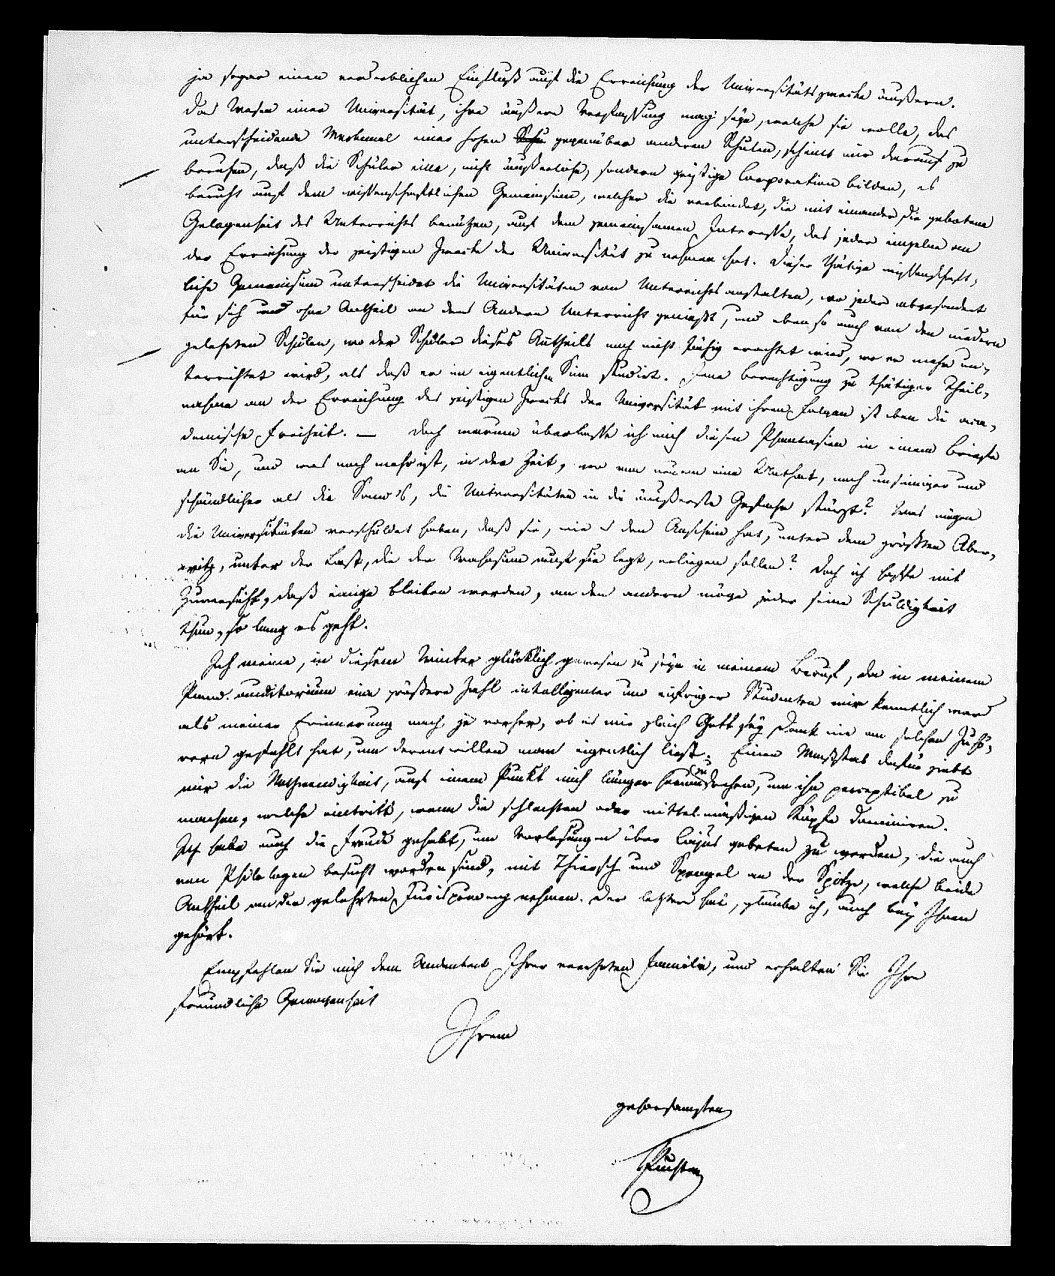 ja sogar einen verderblichen Einfluß auf die Erreichung der Universitätszwecke äußern.
Das Wesen einer Universität, ihre äußere Verfassung mag seyn, welche sie wolle, das
unterscheidende Merkmal einer hohen gegenüber anderen Schulen, scheint mir darauf zu
beruhen, daß die Schüler eine, nicht äußerliche, sondern geistige Corporation bilden, es
beruht auf dem wissenschaftlichen Gemeinsinn, welcher die verbindet, die mit einander die gebotene
Gelegenheit des Unterrichts benützen, auf dem gemeinsamen Interesse, das jeder einzelne an
der Erreichung der geistigen Zwecke der Universität zu nehmen hat. Dieser thätige wissenschaft-
liche Gemeinsinn unterscheidet die Universitäten von Unterrichtsanstalten, wo jeder abgesondert
für sich und ohne Antheil an dem Andern Unterricht genießt, und eben so auch von den niedern
gelehrten Schulen, wo der Schüler dieses Antheils noch nicht fähig erachtet wird, wo er mehr un-
terrichtet wird, als daß er im eigentlichen Sinn studirt. Jene Berechtigung zu thätiger Theil-
nahme an der Erreichung des geistigen Zwecks der Universität mit ihren Folgen ist eben die aca-
demische Freiheit. — Doch warum überlasse ich mich diesen Phantasien in einem Briefe
an Sie, und was noch mehr ist, in der Zeit, wo von neuem eine Unthat, noch unsinniger und
schändlicher als die Sand's, die Universitäten in die äußerste Gefahr stürzt? Was mögen
die Universitäten verschuldet haben, daß sie, wie es den Anschein hat, unter dem größten Aber-
witz, unter der Last, die der Wahnsinn auf sie legt, erliegen sollen? Doch ich hoffe mit
Zuversicht, daß einige bleiben werden, an den andern möge jeder seine Schuldigkeit
thun, so lang es geht.
Ich meine, in diesem Winter glücklich gewesen zu seyn in meinem Beruf, da in meinem
Pand. auditorium eine größere Zahl intelligenter und eifriger Studenten mir kenntlich ward
als meiner Erinnerung nach je vorher, ob es mir gleich Gott sey Dank nie an solchen Zuhö-
rern gefehlt hat, um derentwillen man eigentlich liest. Einen Maaßstab dafür giebt
mir die Nothwendigkeit, auf einem Punkt mich länger herumzudrehen, um ihn perceptibel zu
machen, welche eintritt, wenn die schlechten oder mittelmäßigen Köpfe dominiren.
Ich habe auch die Freude gehabt, um Vorlesungen über Cajus gebeten zu werden, die auch
von Philologen besucht worden sind, mit Thiersch und Spengel an der Spitze, welche beide
Antheil an der gelehrten Jurisprudenz nehmen. Der letztere hat, glaube ich, auch bey Ihnen
gehört.
Empfehlen Sie mich dem Andenken Ihrer verehrten Familie, und erhalten Sie Ihre
freundliche Gewogenheit
Ihrem
gehorsamsten
Puchta